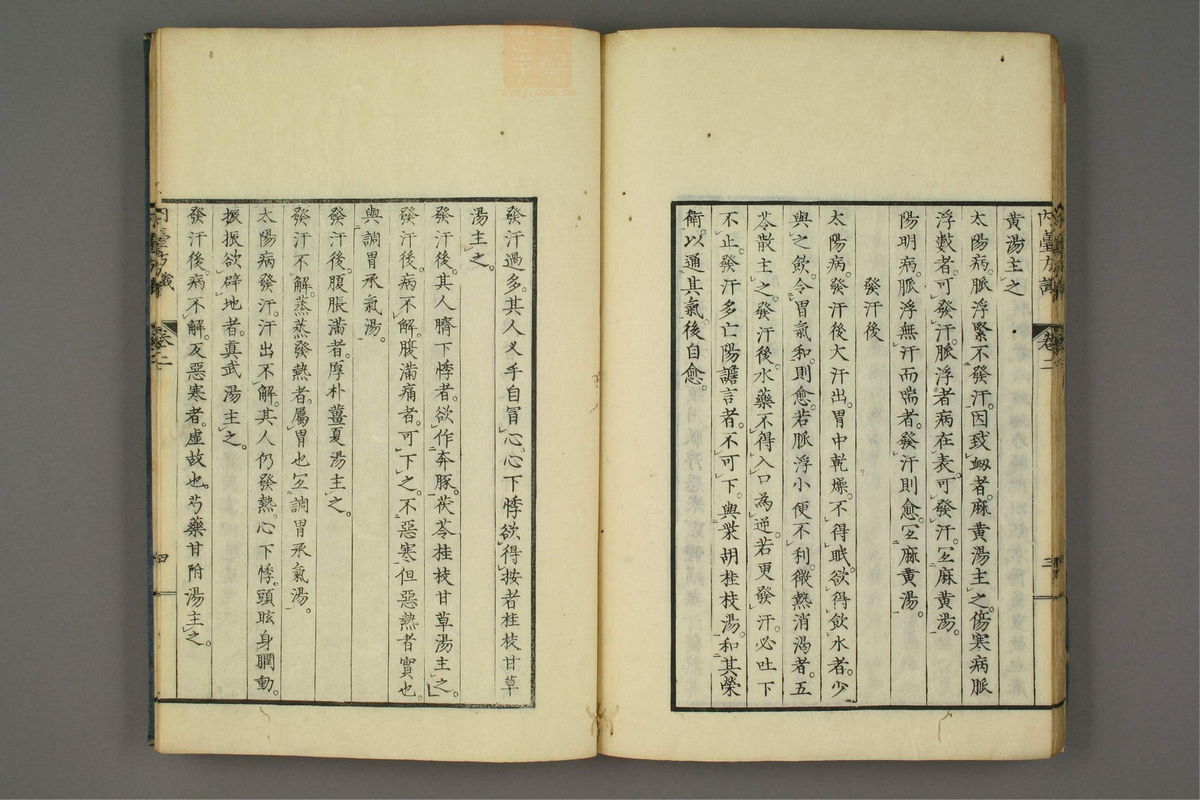 黃湯主之
太陽病。脈浮緊不發汗。因致衂者。麻黃湯主之。傷寒病脈
浮數者。可發汗。脈浮者病在表。可發汗。宜麻黃湯。
陽明病。脈浮無汗而喘者。發汗則愈。宜麻黃湯。
發汗後
太陽病。發汗後大汗出。胃中乾燥。不得眠。欲得飲水者。少
與之飲。令胃氣和。則愈。若脈浮小便不利。微熱消渴者。五
苓散主之。發汗後。水藥不得入口為逆。若更發汗。必吐下
不止。發汗多亡陽譫言者。不可下。與柴胡桂枝湯。和其榮
衛。以通其氣。後自愈。
卷二
三
發汗過多。其人叉手自冒心。心下悸。欲得按者桂枝甘草
湯主之。
發汗後。其人臍下悸者。欲作奔豚。茯苓桂枝甘草湯主之。
發汗後。病不解。腹滿痛者。可下之。不惡寒但惡熱者實也。
與調胃承氣湯。
發汗後。腹脹滿者。厚朴薑夏湯主之。
發汗不解。蒸蒸發熱者。屬胃也。宜調胃承氣湯。
太陽病發汗。汗出不解。其人仍發熱。心下悸。頭眩身瞤動。
振振欲辟地者。真武湯主之。
發汗後。病不解。反惡寒者。虛故也。芍藥甘附湯主之。
卷二
四